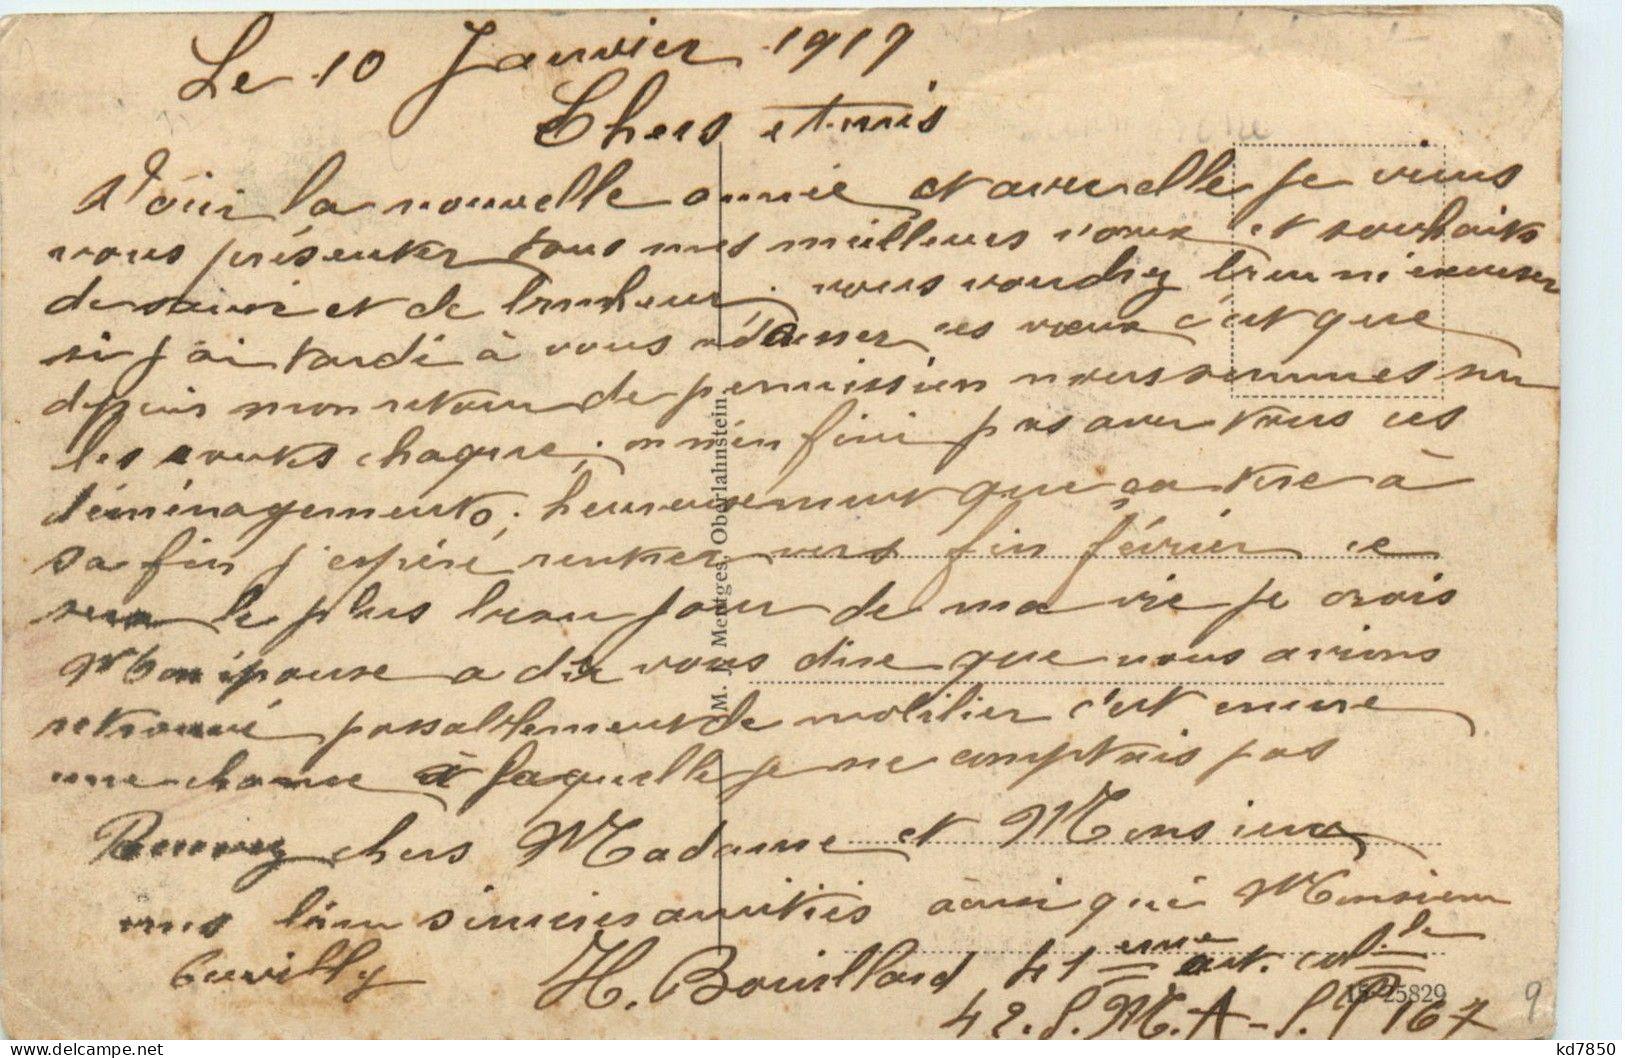 Le 10 Janvier 1919
Chers Amis
Voici la nouvelle année et avec elle je viens
vous présenter tous mes meilleurs vœux et souhaits
de santé et de bonheur. vous voudrez bien m'excuser
si j'ai tardé à vous adresser ces vœux c'est que
depuis mon retour de permission nous sommes sur
les routes chaque; on n'en fini pas avec tous ces
déménagements; heureusement que ça tire à
sa fin j'espère rentrer vers fin février ce
sera le plus beau jour de ma vie je crois
Mon épouse a dû vous dire que nous avions
retrouvé passablement de mobilier c'est encore
une chance à laquelle je ne comptais pas
Recevez chers Madame et Monsieur
mes bien sincères amitiés ainsi qui Monsieur
Cuvilly H. Bouillard 41ème art. col.le
42e S.M.A - S.P 167
M. J. Mentges, Oberlahnstein
15 25829
9
kd7850